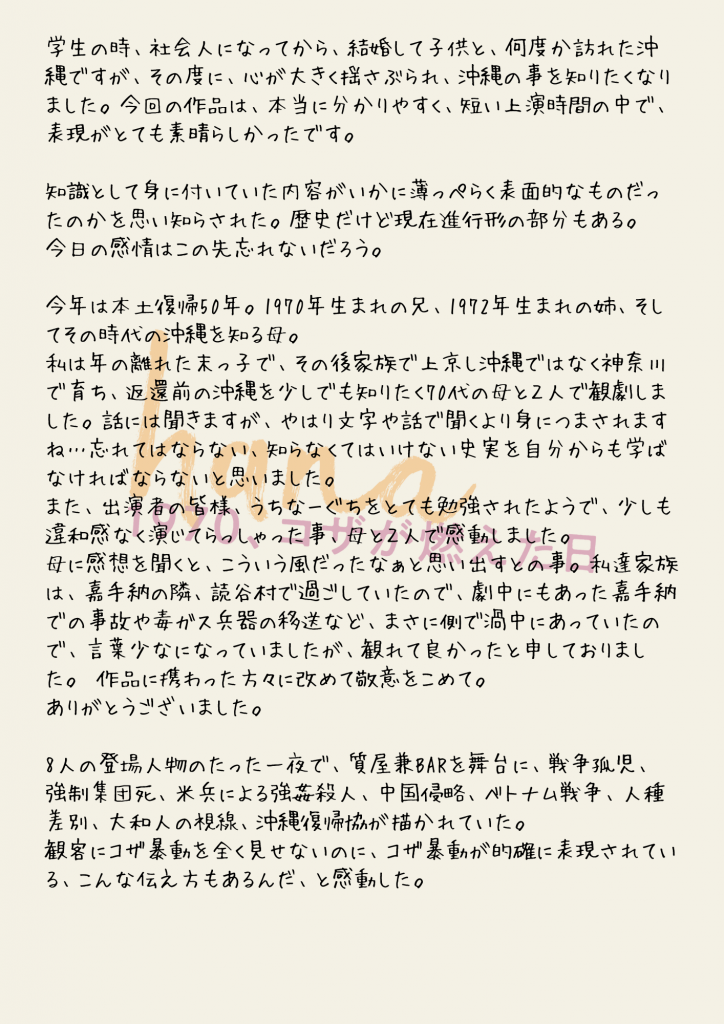 学生の時、社会人になってから、結婚して子供と、何度か訪れた沖
縄ですが、その度に、心が大きく揺さぶられ、沖縄の事を知りたくなり
ました。今回の作品は、本当に分かりやすく、短い上演時間の中で、
表現がとても素晴らしかったです。
知識として身に付いていた内容がいかに薄っぺらく表面的なものだっ
たのかを思い知らされた。歴史だけど現在進行形の部分もある。
今日の感情はこの先忘れないだろう。
今年は本土復帰50年。1970年生まれの兄、1972年生まれの姉、そし
てその時代の沖縄を知る母。
私は年の離れた末っ子で、その後家族で上京し沖縄ではなく神奈川
で育ち、返還前の沖縄を少しでも知りたく70代の母と2人で観劇しま
した。話には聞きますが、やはり文字や話で聞くより身につまされます
ね…忘れてはならない、知らなくてはいけない史実を自分からも学ば
なければならないと思いました。
また、出演者の皆様、うちなーぐちをとても勉強されたようで、少しも
違和感なく演じてらっしゃった事、母と2人で感動しました。
母に感想を聞くと、こういう風だったなぁと思い出すとの事。私達家族
は、嘉手納の隣、読谷村で過ごしていたので、劇中にもあった嘉手納
での事故や毒ガス兵器の移送など、まさに側で渦中にあっていたの
で、言葉少なになっていましたが、観れて良かったと申しておりまし
た。 作品に携わった方々に改めて敬意をこめて。
ありがとうございました。
8人の登場人物のたった一夜で、質屋兼BARを舞台に、戦争孤児、
強制集団死、米兵による強姦殺人、中国侵略、ベトナム戦争、人種
差別、大和人の視線、沖縄復帰協が描かれていた。
観客にコザ暴動を全く見せないのに、コザ暴動が的確に表現されてい
る、こんな伝え方もあるんだ、と感動した。
hana
1970、コザが燃えた日